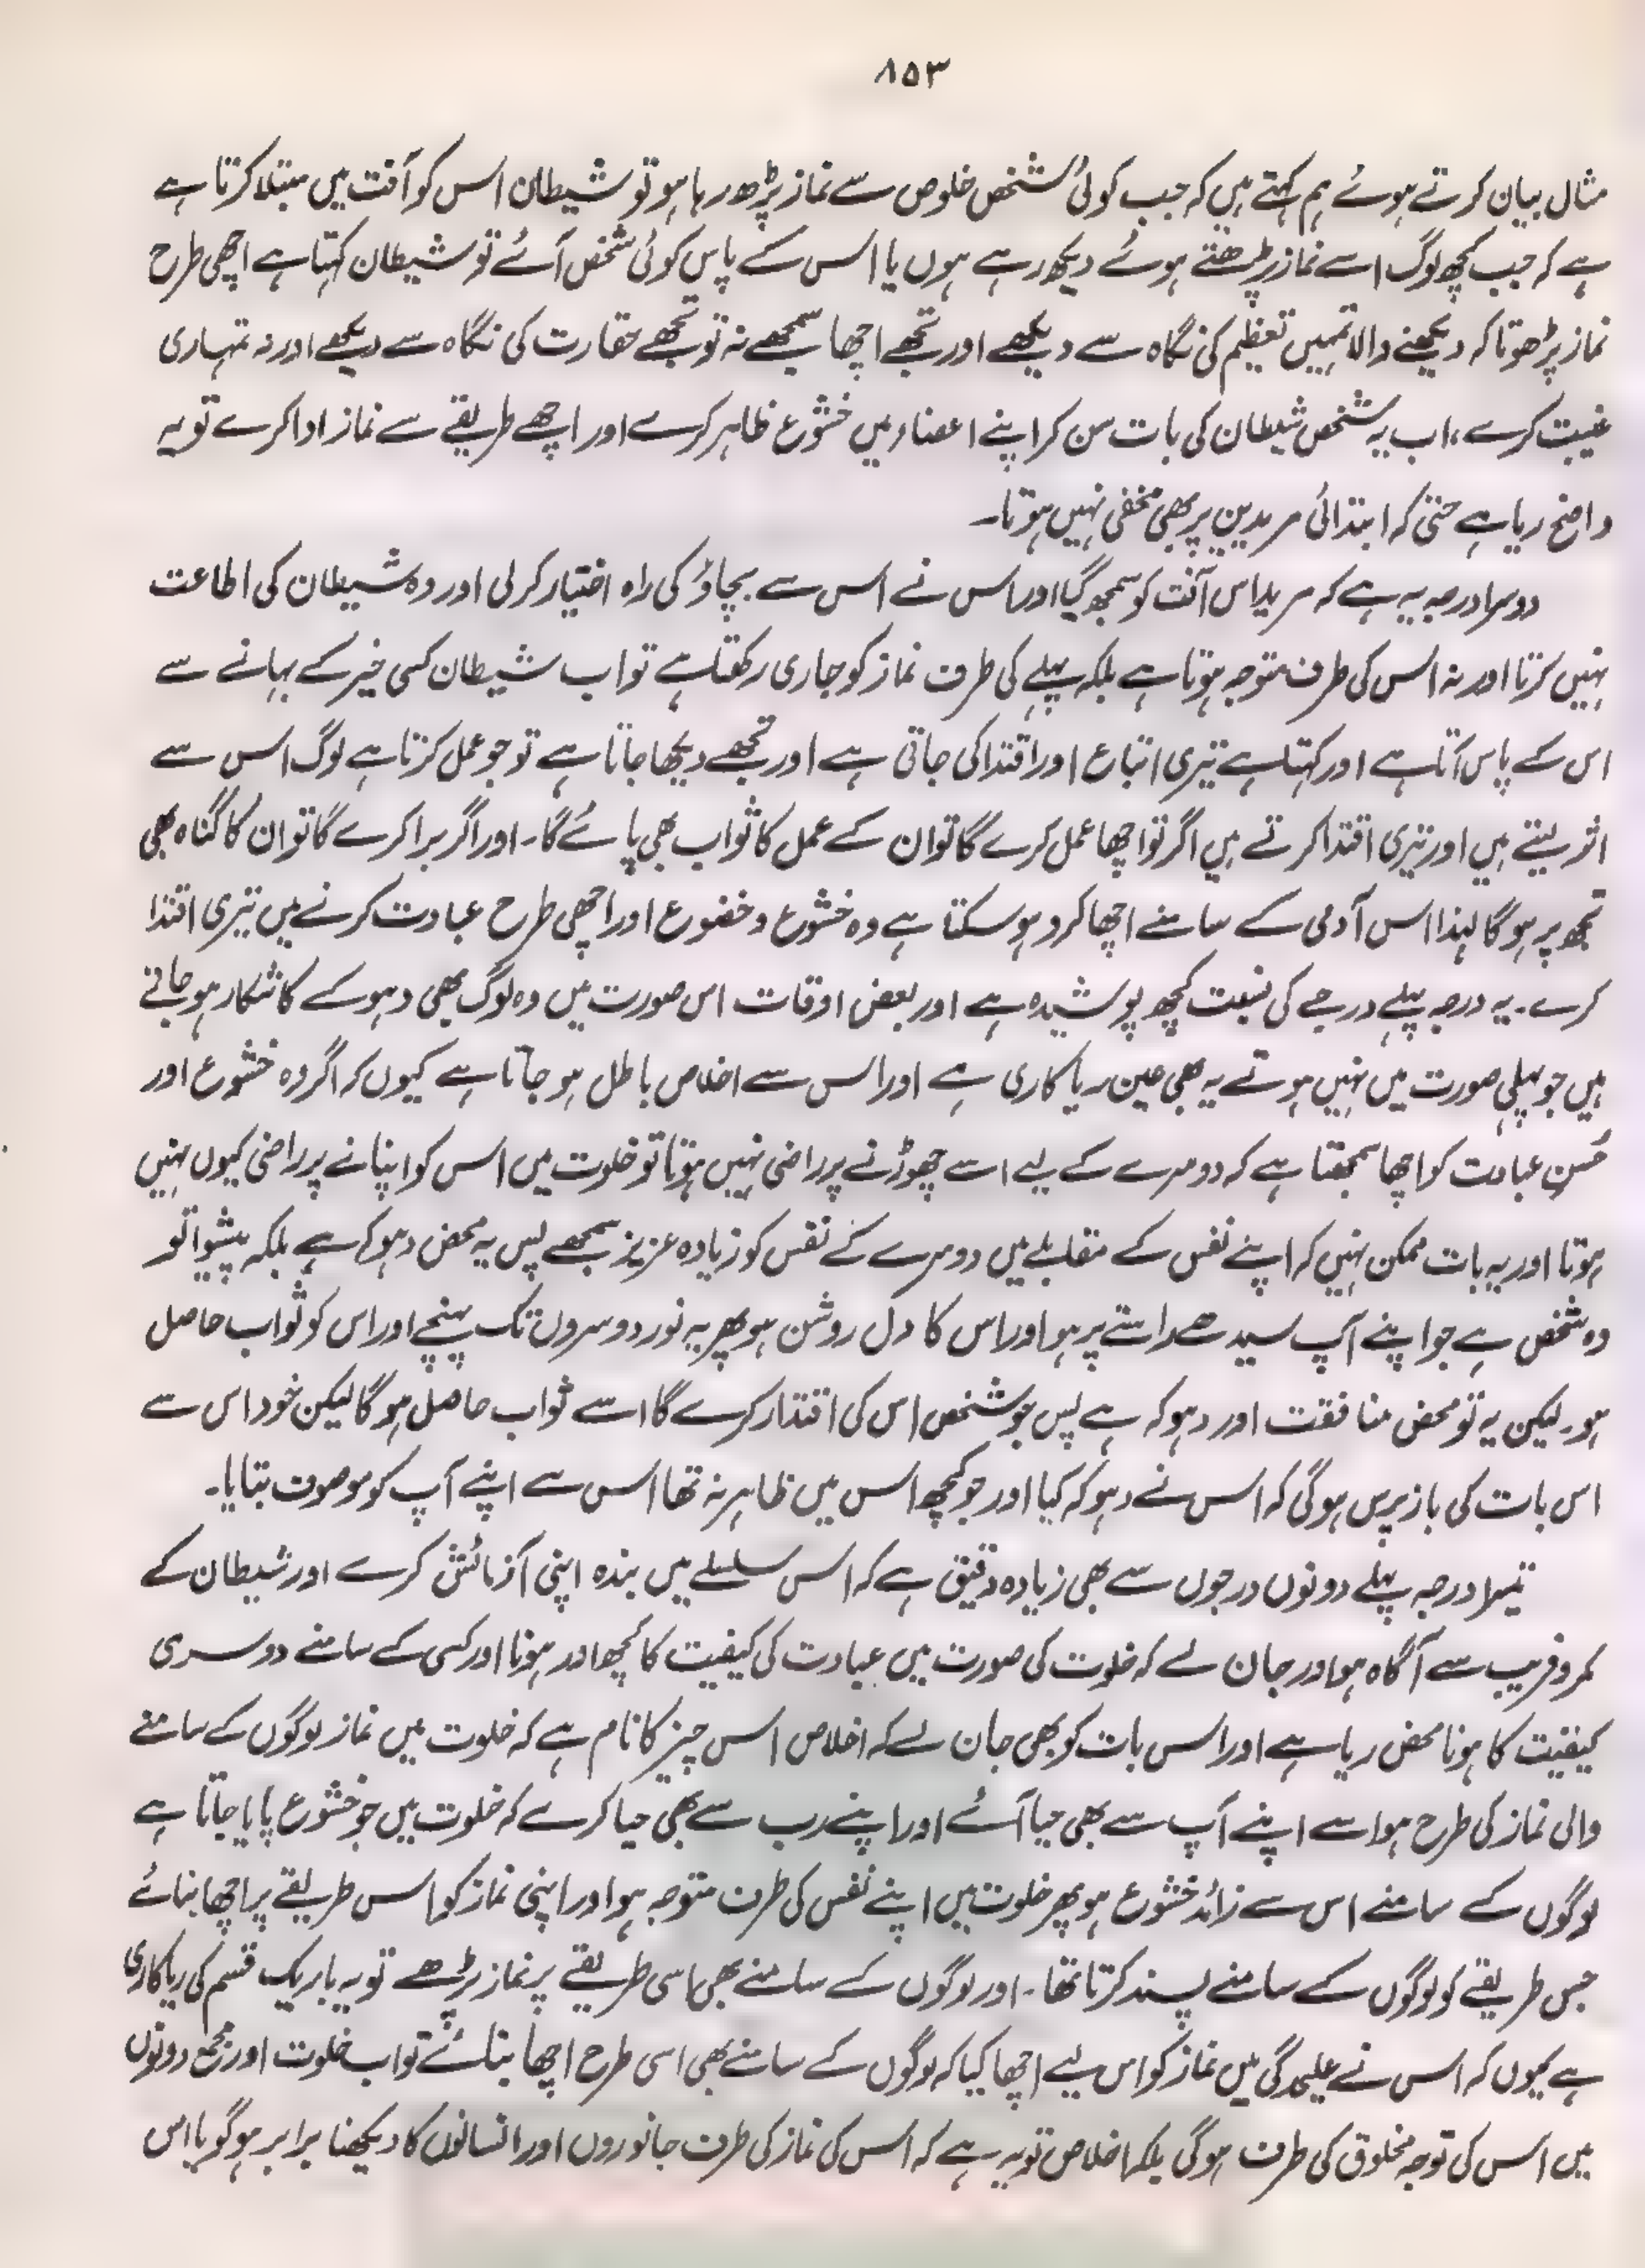 ۸۵۳
مثال بیان کرتے ہوئے ہم کہتے ہیں کہ جب کوئی شخص خلوص سے نماز پڑھ رہا ہو تو شیطان اس کو آفت میں مبتلا کرتا ہے
ہے کہ جب کچھ لوگ اسے نماز پڑھتے ہوئے دیکھ رہے ہوں یا اس کے پاس کوئی شخص آئے تو شیطان کہتا ہے اچھی طرح
نماز پڑھو تاکہ دیکھنے والا تمہیں تعظیم کی نگاہ سے دیکھے اور تجھے اچھا سمجھے نہ تو تجھے حقارت کی نگاہ سے دیکھے اور نہ تمہاری
غیبت کرے، اب یہ شخص شیطان کی بات سن کر اپنے اعضاء میں خشوع ظاہر کرے اور اچھے طریقے سے نماز ادا کرے تو یہ
واضح ریا ہے حتیٰ کہ ابتدائی مریدین پر بھی مخفی نہیں ہوتا۔
دوسرا درجہ یہ ہے کہ مرید اس آفت کو سمجھ گیا اور اس نے اس سے بچاؤ کی راہ اختیار کر لی اور وہ شیطان کی اطاعت
نہیں کرتا اور نہ اس کی طرف متوجہ ہوتا ہے بلکہ پہلے کی طرف نماز کو جاری رکھتا ہے تو اب شیطان کسی خیر کے بہانے سے
اس کے پاس آتا ہے اور کہتا ہے تیری اتباع اور اقتدا کی جاتی ہے اور تجھے دیکھا جاتا ہے تو جو عمل کرتا ہے لوگ اس سے
اثر لیتے ہیں اور تیری اقتدا کرتے ہیں اگر تو اچھا عمل کرے گا تو ان کے عمل کا ثواب بھی پائے گا۔ اور اگر برا کرے گا تو ان کا گناہ بھی
تجھ پر ہو گا لہذا اس آدمی کے سامنے اچھا کرو ہو سکتا ہے وہ خشوع و خضوع اور اچھی طرح عبادت کرنے میں تیری اقتدا
کرے۔ یہ درجہ پہلے درجے کی نسبت کچھ پوشیدہ ہے اور بعض اوقات اس صورت میں وہ لوگ بھی دہوکے کا شکار ہو جاتے
ہیں جو پہلی صورت میں نہیں ہوتے یہ بھی عین ریا کاری ہے اور اس سے اخلاص باطل ہو جاتا ہے کیوں کہ اگر وہ خشوع اور
حُسنِ عبادت کو اچھا سمجھتا ہے کہ دوسرے کے لیے اسے چھوڑنے پر راضی نہیں ہوتا تو خلوت میں اس کو اپنانے پر راضی کیوں نہیں
ہوتا اور یہ بات ممکن نہیں کہ اپنے نفس کے مقابلے میں دوسرے کے نفس کو زیادہ عزیز سمجھے پس یہ محض دہوکہ ہے بلکہ پیشوا تو
وہ شخص ہے جو اپنے آپ سیدھے راستے پر ہو اور اس کا دل روشن ہو پھر یہ نور دوسروں تک پہنچے اور اس کو ثواب حاصل
ہو۔ لیکن یہ تو محض منافقت اور دہوکہ ہے پس جو شخص اس کی اقتداء کرے گا اسے ثواب حاصل ہو گا لیکن خود اس سے
اس بات کی باز پرس ہو گی کہ اس نے دہوکہ کیا اور جو کچھ اس میں ظاہر نہ تھا اس سے اپنے آپ کو موصوف بتایا۔
تیسرا درجہ پہلے دونوں درجوں سے بھی زیادہ دقیق ہے کہ اس سلسلے میں بندہ اپنی آزمائش کرے اور شیطان کے
مکر و فریب سے آگاہ ہو اور جان لے کہ خلوت کی صورت میں عبادت کی کیفیت کا کچھ اور ہونا اور کسی کے سامنے دوسری
کیفیت کا ہونا محض ریا ہے اور اس بات کو بھی جان لے کہ اخلاص اس چیز کا نام ہے کہ خلوت میں نماز لوگوں کے سامنے
والی نماز کی طرح ہو اسے اپنے آپ سے بھی حیا آئے اور اپنے رب سے بھی حیا کرے کہ خلوت میں جو خشوع پایا جاتا ہے
لوگوں کے سامنے اس سے زائد خشوع ہو پھر خلوت میں اپنے نفس کی طرف متوجہ ہو اور اپنی نماز کو اس طریقے پر اچھا بنائے
جس طریقے کو لوگوں کے سامنے پسند کرتا تھا۔ اور لوگوں کے سامنے بھی اسی طریقے پر نماز پڑھے تو یہ باریک قسم کی ریاکاری
ہے کیوں کہ اس نے علیحدگی میں نماز کو اس لیے اچھا کیا کہ لوگوں کے سامنے بھی اسی طرح اچھا بنائے تو اب خلوت اور مجمع دونوں
میں اس کی توجہ مخلوق کی طرف ہو گی بلکہ اخلاص تو یہ ہے کہ اس کی نماز کی طرف جانوروں اور انسانوں کا دیکھنا برابر ہو گویا اس